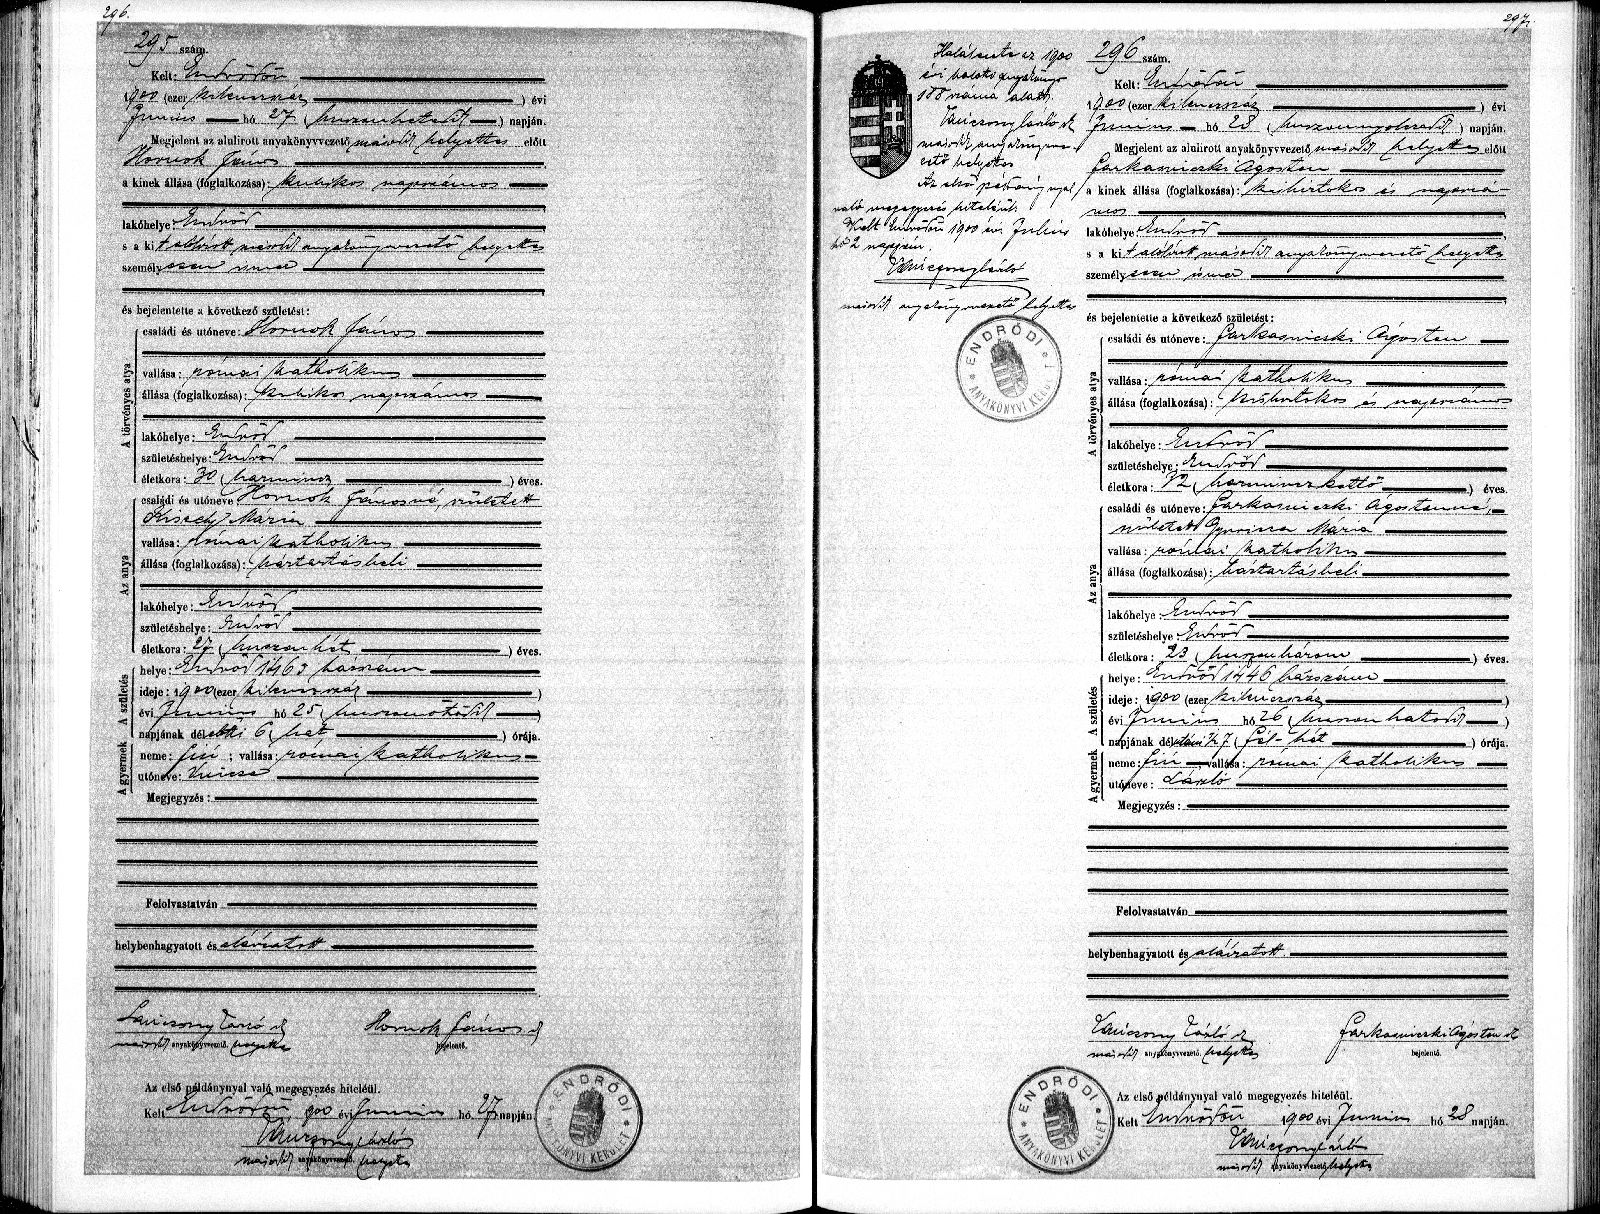 296.
295 szám.
Kelt: Endrődön
1900 (ezer kilenczszáz ) évi
Junius hó 27 ( huszonhetedik ) napján.
Megjelent az alulirott anyakönyvvezető második helyettes előtt
Hornok János
a kinek állása (foglalkozása): kubikos napszámos
lakóhelye: Endrőd
s a kit alólirott második anyakönyvvezető helyettes
személyesen ismer
és bejelentette a következő születést:
A törvényes atya
családi és utóneve: Hornok János
vallása: római katholikus
állása (foglalkozása): kubikos napszámos
lakóhelye: Endrőd
születéshelye: Endrőd
életkora: 30 ( harmincz ) éves.
Az anya
családi és utóneve Hornok Jánosné, született
Mária
vallása: római katholikus
állása (foglalkozása): háztartásbeli
lakóhelye: Endrőd
születéshelye: Endrőd
életkora: 27 ( huszonhét ) éves.
A születés
helye: Endrőd 1463 házszám
ideje: 1900 (ezer kilenczszáz )
évi Junius hó 25 ( huszonötödik )
napjának délelőtti 6 ( hat ) órája.
A gyermek
neme: fiú ; vallása: római katholikus
utóneve: Vincze
Megjegyzés:
Felolvastatván
helybenhagyatott és aláiratott
Vanicsony László sk Hornok János sk
második anyakönyvvezető. helyettes bejelentő.
Az első példánynyal való megegyezés hiteléül.
Kelt Endrődön, 1900 évi Junius hó 27 napján.
Vanicsony László
második anyakönyvvezető. helyettes
ENDRŐDI
ANYAKÖNYVI KERÜLET
297.
Halálozta az 1900
évi halotti anyakönyv
188 száma alatt.
Vanicsony László sk
második anyakönyvve-
zető helyettes
Az első példánynyal
való megegyezés hiteléül.
Kelt Endrődön 1900 évi Julius
hó 2 napján.
Vanicsony László
második anyakönyvvezető helyettes
ENDRŐDI
ANYAKÖNYVI KERÜLET
296 szám.
Kelt: Endrődön
1900 (ezer kilenczszáz ) évi
Junius hó 28 ( huszonnyolczadik ) napján.
Megjelent az alulirott anyakönyvvezető második helyettes előtt
Farkasinszki Ágoston
a kinek állása (foglalkozása): kisbirtokos és napszá-
mos
lakóhelye: Endrőd
s a kit alólirott második anyakönyvvezető helyettes
személyesen ismer
és bejelentette a következő születést:
A törvényes atya
családi és utóneve: Farkasinszki Ágoston
vallása: római katholikus
állása (foglalkozása): kisbirtokos és napszámos
lakóhelye: Endrőd
születéshelye: Endrőd
életkora: 32 ( harminczkettő ) éves.
Az anya
családi és utóneve: Farkasinszki Ágostonné,
született Gyuricza Mária
vallása: római katholikus
állása (foglalkozása): háztartásbeli
lakóhelye: Endrőd
születéshelye Endrőd
életkora: 23 ( huszonhárom ) éves.
A születés
helye: Endrőd 1446 házszám
ideje: 1900 (ezer kilenczszáz )
évi Junius hó 26 ( huszonhatodik )
napjának délutáni 1/2 7 ( fél-hét ) órája.
A gyermek
neme: fiú vallása: római katholikus
utóneve: László
Megjegyzés:
Felolvastatván
helybenhagyatott és aláiratott.
Vanicsony László sk Farkasinszki Ágoston sk
második anyakönyvvezető. helyettes bejelentő.
Az első példánynyal való megegyezés hiteléül.
Kelt Endrődön 1900 évi Junius hó 28 napján.
Vanicsony László
második anyakönyvvezető helyettes
ENDRŐDI
ANYAKÖNYVI KERÜLET